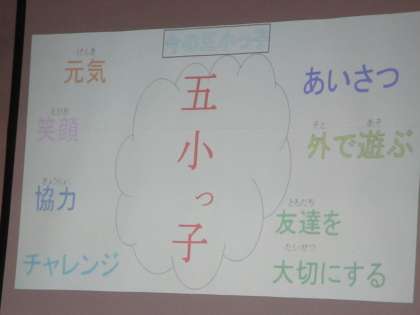 今の五小っ子
五小っ子
げんき
元気
えがお
笑顔
きょうりょく
協力
チャレンジ
あいさつ
そと あそ
外で遊ぶ
ともだち
友達を
たいせつ
大切にする